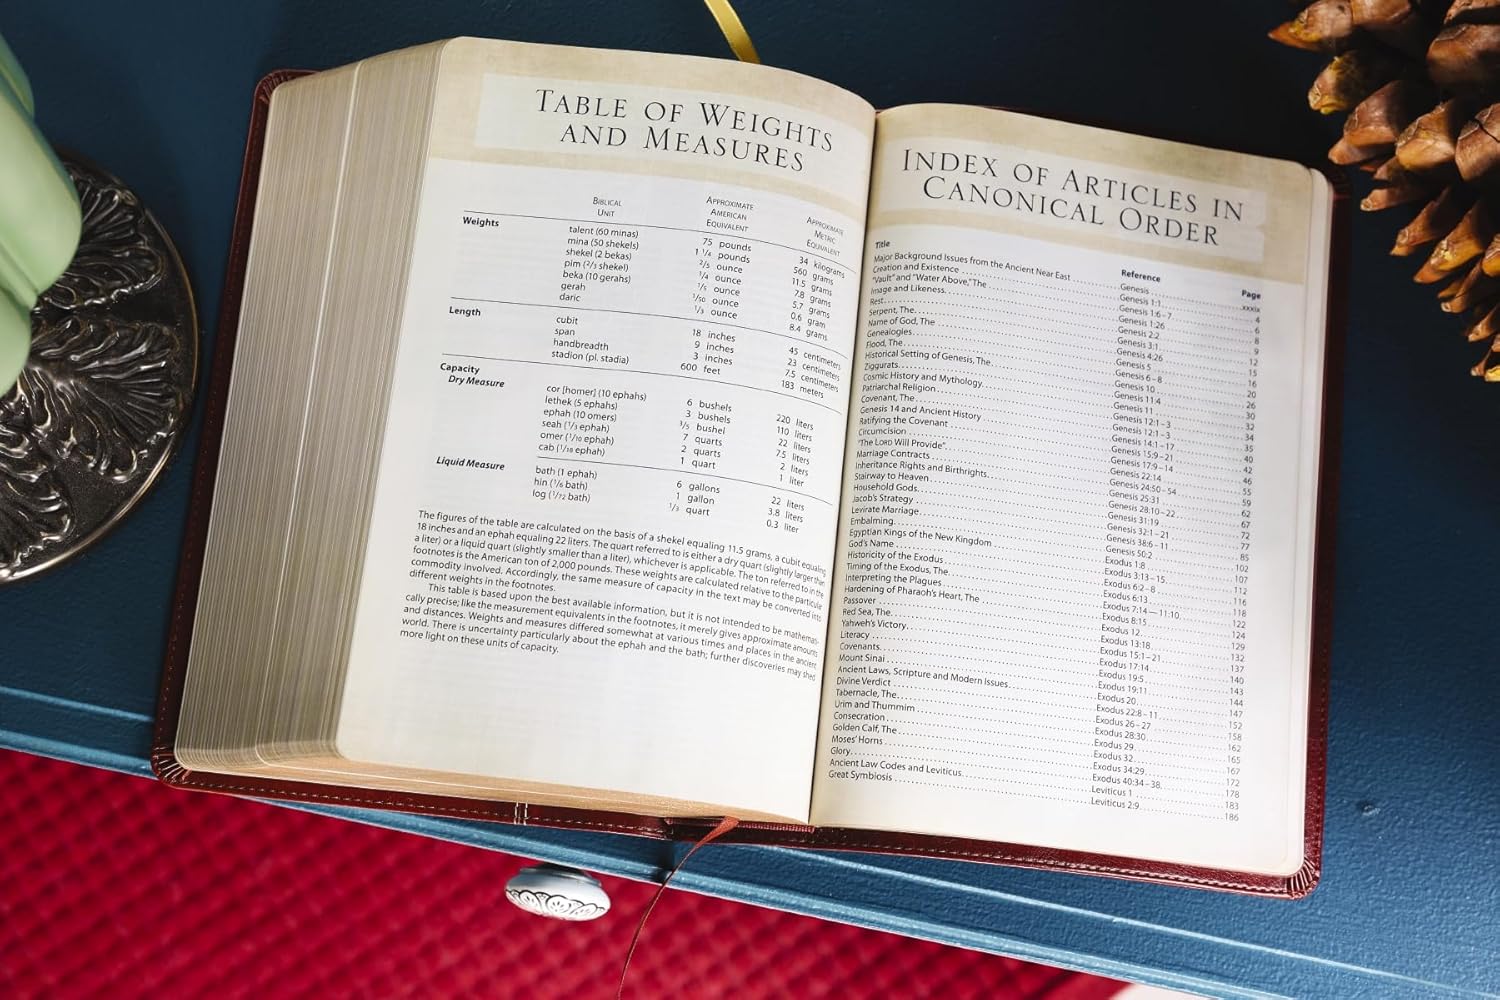 TABLE OF WEIGHTS
AND MEASURES
BIBLICAL UNIT APPROXIMATE AMERICAN EQUIVALENT APPROXIMATE METRIC EQUIVALENT
Weights talent (60 minas) 75 pounds 34 kilograms
mina (50 shekels) 1 1/4 pounds 560 grams
shekel (2 bekas) 2/5 ounce 11.5 grams
pim (2/3 shekel) 1/4 ounce 7.8 grams
beka (10 gerahs) 1/5 ounce 5.7 grams
gerah 1/50 ounce 0.6 gram
daric 1/3 ounce 8.4 grams
Length cubit 18 inches 45 centimeters
span 9 inches 23 centimeters
handbreadth 3 inches 7.5 centimeters
stadion (pl. stadia) 600 feet 183 meters
Capacity
Dry Measure cor [homer] (10 ephahs) 6 bushels 220 liters
lethek (5 ephahs) 3 bushels 110 liters
ephah (10 omers) 3/5 bushel 22 liters
seah (1/3 ephah) 7 quarts 7.5 liters
omer (1/10 ephah) 2 quarts 2 liters
cab (1/18 ephah) 1 quart 1 liter
Liquid Measure bath (1 ephah) 6 gallons 22 liters
hin (1/6 bath) 1 gallon 3.8 liters
log (1/72 bath) 1/3 quart 0.3 liter
The figures of the table are calculated on the basis of a shekel equaling 11.5 grams, a cubit equaling
18 inches and an ephah equaling 22 liters. The quart referred to is either a dry quart (slightly larger than
a liter) or a liquid quart (slightly smaller than a liter), whichever is applicable. The ton referred to in the
footnotes is the American ton of 2,000 pounds. These weights are calculated relative to the particular
commodity involved. Accordingly, the same measure of capacity in the text may be converted into
different weights in the footnotes.
This table is based upon the best available information, but it is not intended to be mathemati-
cally precise; like the measurement equivalents in the footnotes, it merely gives approximate amounts
and distances. Weights and measures differed somewhat at various times and places in the ancient
world. There is uncertainty particularly about the ephah and the bath; further discoveries may shed
more light on these units of capacity.
INDEX OF ARTICLES IN
CANONICAL ORDER
Title Reference Page
Major Background Issues from the Ancient Near East Genesis xxxix
Creation and Existence Genesis 1:1 4
"Vault" and "Water Above," The Genesis 1:6–7 6
Image and Likeness Genesis 1:26 8
Rest Genesis 2:2 9
Serpent, The Genesis 3:1 12
Name of God, The Genesis 4:26 15
Genealogies Genesis 5 16
Flood, The Genesis 6–8 20
Historical Setting of Genesis, The Genesis 10 26
Ziggurats Genesis 11:4 30
Cosmic History and Mythology Genesis 11 32
Patriarchal Religion Genesis 12:1–3 34
Covenant, The Genesis 12:1–3 35
Genesis 14 and Ancient History Genesis 14:1–17 40
Ratifying the Covenant Genesis 15:9–21 42
Circumcision Genesis 17:9–14 46
"The LORD Will Provide" Genesis 22:14 55
Marriage Contracts Genesis 24:50–54 59
Inheritance Rights and Birthrights Genesis 25:31 62
Stairway to Heaven Genesis 28:10–22 67
Household Gods Genesis 31:19 72
Jacob's Strategy Genesis 32:1–21 77
Levirate Marriage Genesis 38:6–11 85
Embalming Genesis 50:2 102
Egyptian Kings of the New Kingdom Exodus 1:8 107
God's Name Exodus 3:13–15 112
Historicity of the Exodus Exodus 6:2–8 116
Timing of the Exodus, The Exodus 6:13 118
Interpreting the Plagues Exodus 7:14—11:10 122
Hardening of Pharaoh's Heart, The Exodus 8:15 124
Passover Exodus 12 129
Red Sea, The Exodus 13:18 132
Yahweh's Victory Exodus 15:1–21 137
Literacy Exodus 17:14 140
Covenants Exodus 19:5 143
Mount Sinai Exodus 19:11 144
Ancient Laws, Scripture and Modern Issues Exodus 20 147
Divine Verdict Exodus 22:8–11 152
Tabernacle, The Exodus 26–27 158
Urim and Thummim Exodus 28:30 162
Consecration Exodus 29 165
Golden Calf, The Exodus 32 167
Moses' Horns Exodus 34:29 172
Glory Exodus 40:34–38 178
Ancient Law Codes and Leviticus Leviticus 1 183
Great Symbiosis Leviticus 2:9 186